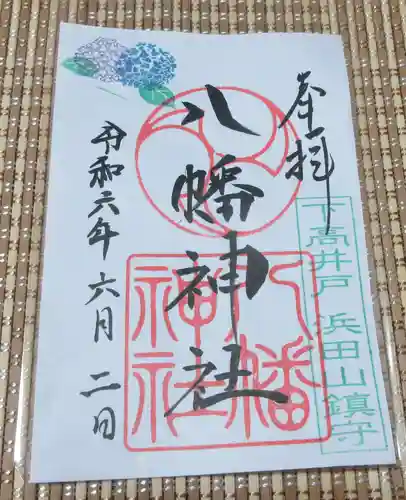 奉拝
八幡神社
令和六年六月二日
八幡
神社
下高井戸
浜田山鎮守